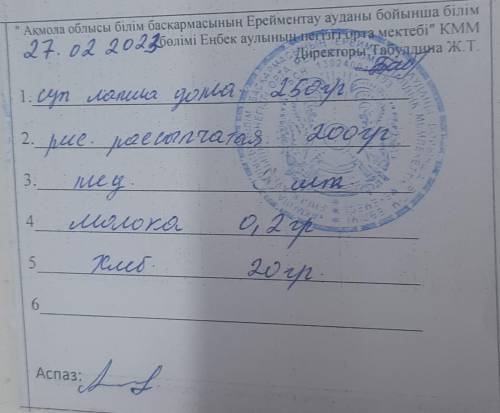 " Ақмола облысы білім басқармасының Ерейментау ауданы бойынша білім
27.02 2023 бөлімі Еңбек аулының негізгі орта мектебі" КММ
Директоры Габуллина Ж.Т.
1. суп лапша дома 250гр
2. рис. рассыпчатая 200гр
3.
4 молока 0,2 гр
5 Хлеб 20гр.
6
Аспаз: